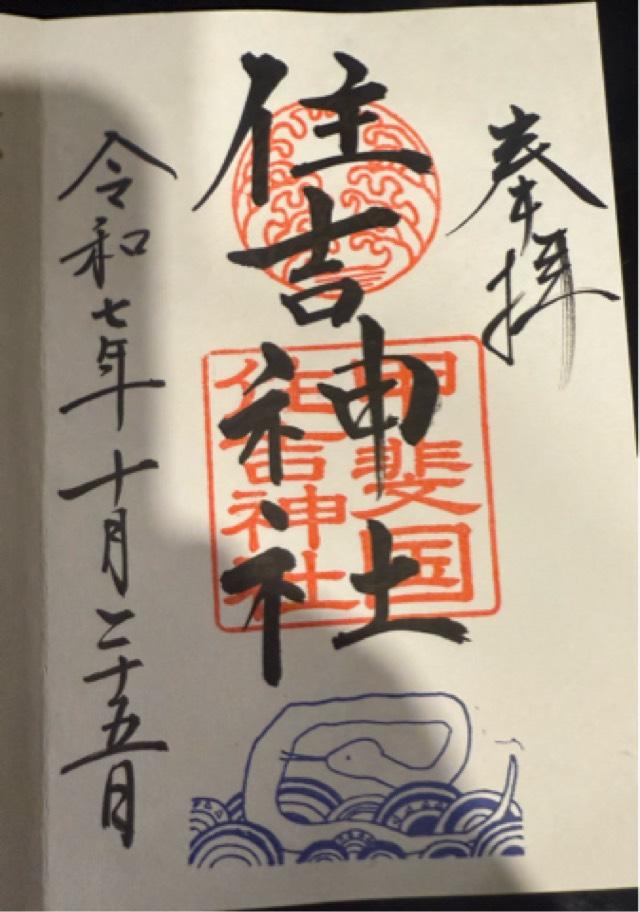 奉拝
住吉神社
甲斐国
住吉神社
令和七年十月二十五日